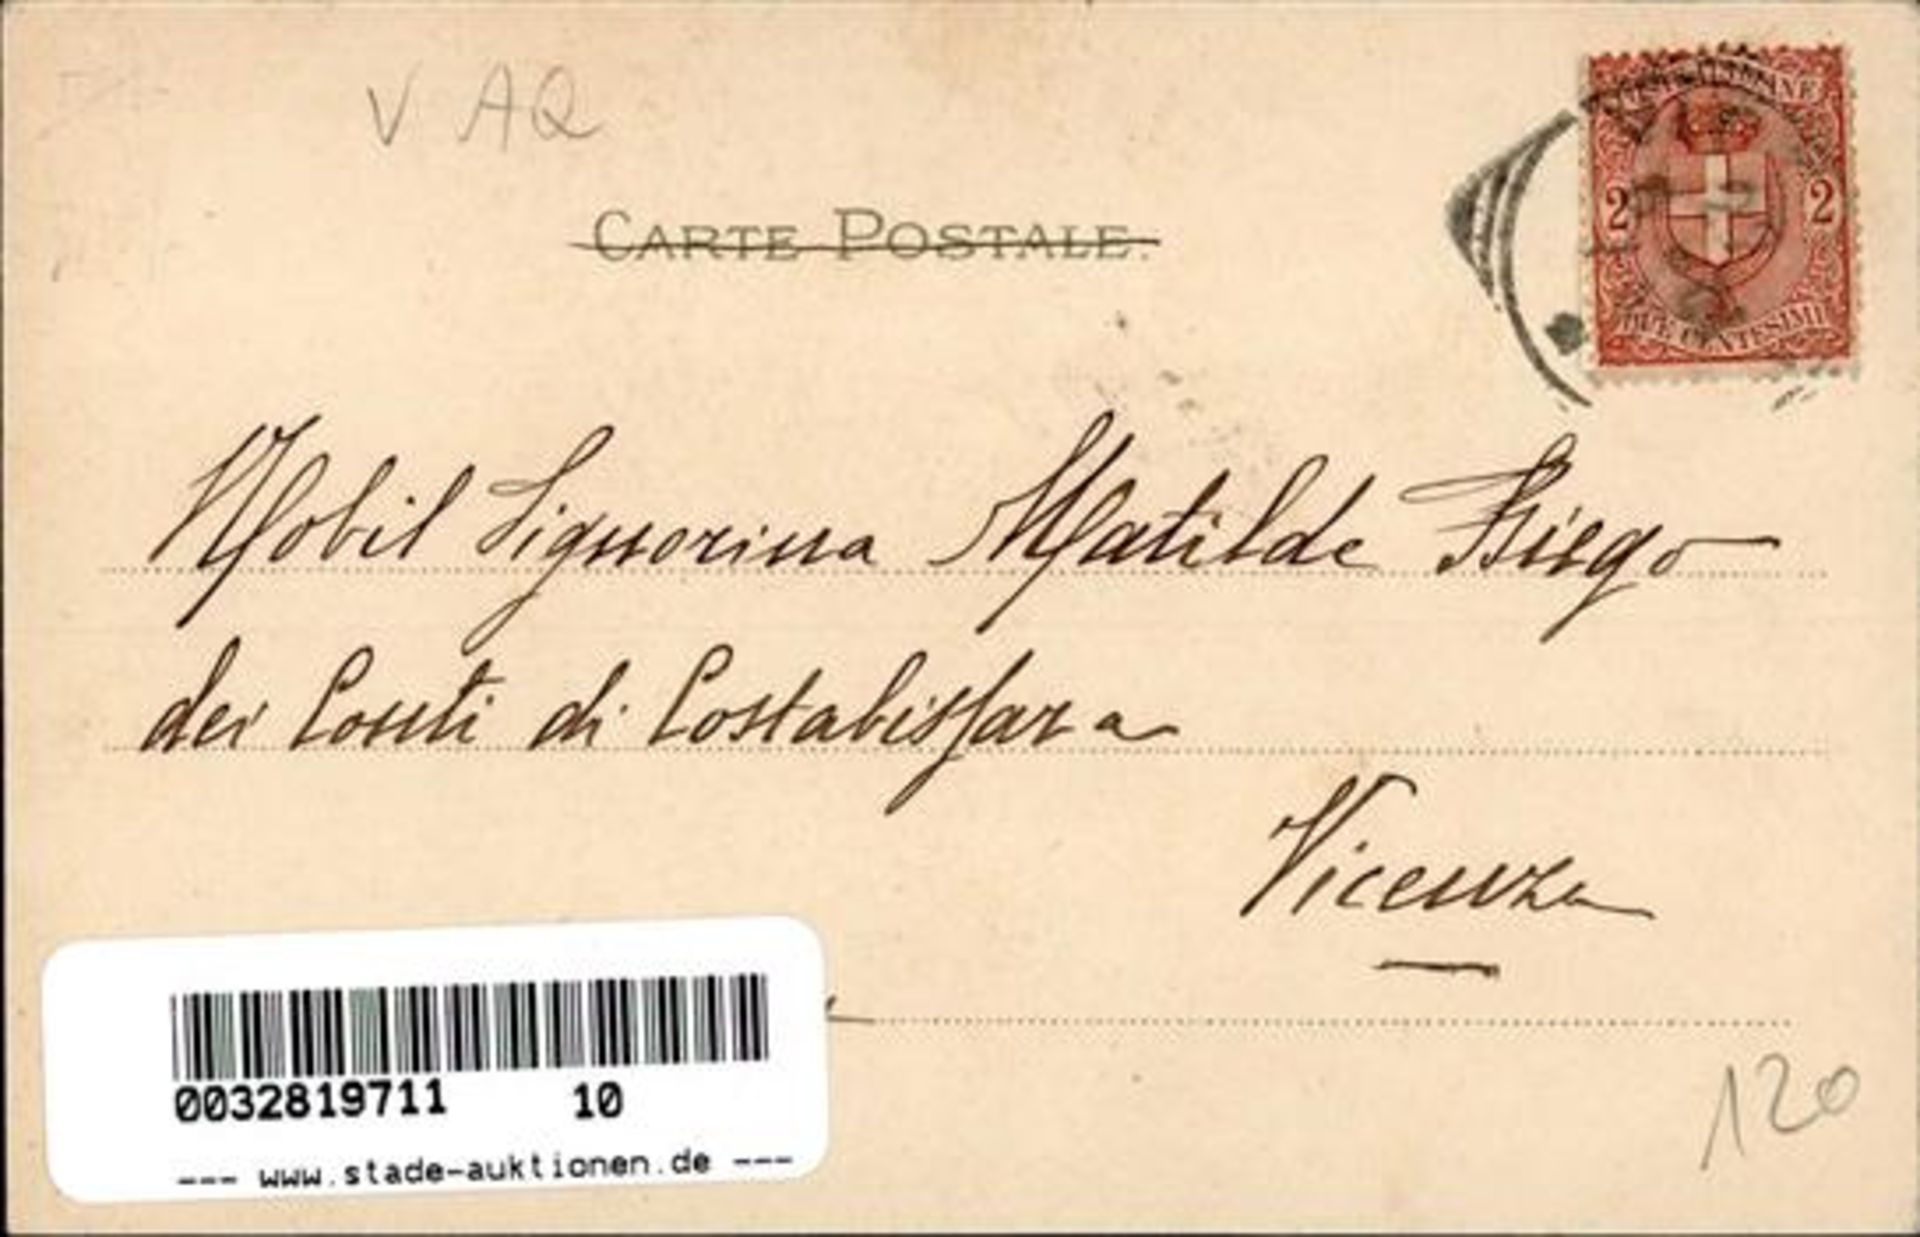 V AQ
CARTE POSTALE.
POSTE ITALIANE
2 2
DUE CENTESIMI
Nobil Signorina Matilde Bisego
dei Conti di Costabissara
Vicenza
0032819711 10
--- www.stade-auktionen.de ---
120